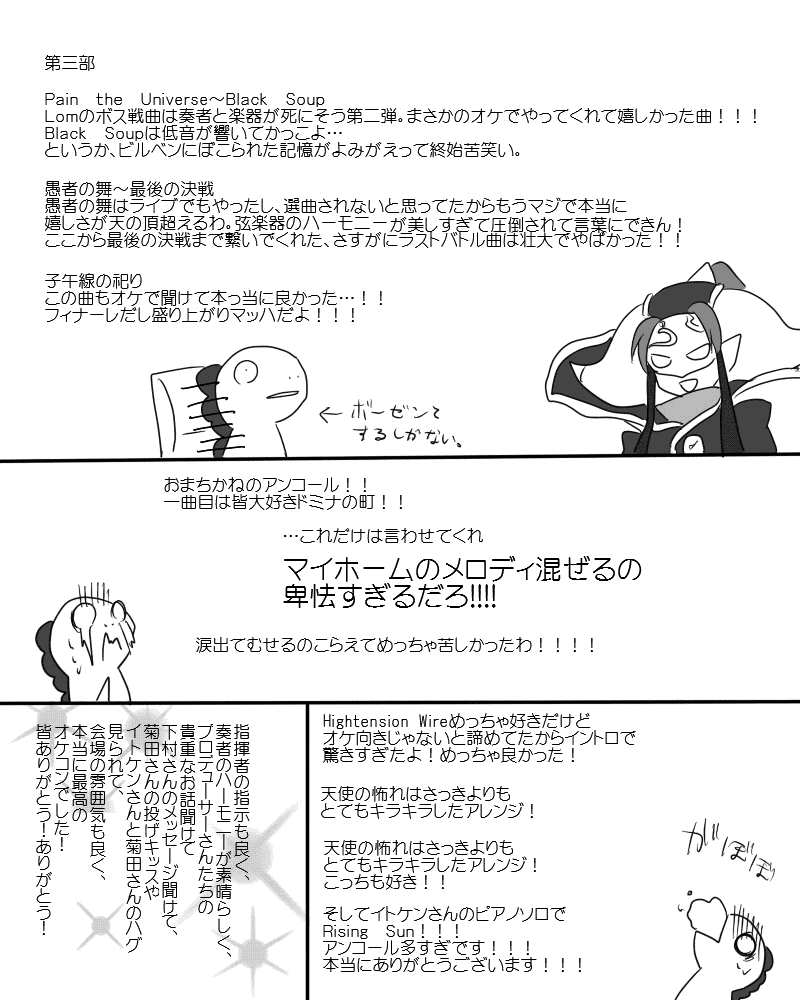 第三部
Pain the Universe～Black Soup
Lomのボス戦曲は奏者と楽器が死にそう第二弾。まさかのオケでやってくれて嬉しかった曲！！！
Black Soupは低音が響いてかっこよ…
というか、ビルベンにぼこられた記憶がよみがえって終始苦笑い。
愚者の舞～最後の決戦
愚者の舞はライブでもやったし、選曲されないと思ってたからもうマジで本当に
嬉しさが天の頂超えるわ。弦楽器のハーモニーが美しすぎて圧倒されて言葉にできん！
ここから最後の決戦まで繋いでくれた、さすがにラストバトル曲は壮大でやばかった！！
子午線の祀り
この曲もオケで聞けて本っ当に良かった…！！
フィナーレだし盛り上がりマッハだよ！！！
←ボーゼンと
するしかない。
おまちかねのアンコール！！
一曲目は皆大好きドミナの町！！
…これだけは言わせてくれ
マイホームのメロディ混ぜるの
卑怯すぎるだろ!!!!
涙出てむせるのこらえてめっちゃ苦しかったわ！！！！
Hightension Wireめっちゃ好きだけど
オケ向きじゃないと諦めてたからイントロで
驚きすぎたよ！めっちゃ良かった！
天使の怖れはさっきよりも
とてもキラキラしたアレンジ！
天使の怖れはさっきよりも
とてもキラキラしたアレンジ！
こっちも好き！！
そしてイトケンさんのピアノソロで
Rising Sun！！！
アンコール多すぎです！！！
本当にありがとうございます！！！
がぼぼぼ
指揮者の指示も良く、
奏者のハーモニーが素晴らしく、
プロデューサーさんたちの
貴重なお話聞けて
下村さんのメッセージ聞けて、
菊田さんの投げキッスや
イトケンさんと菊田さんのハグ
見られて、
会場の雰囲気も良く、
本当に最高の
オケコンでした！
皆ありがとう！ありがとう！